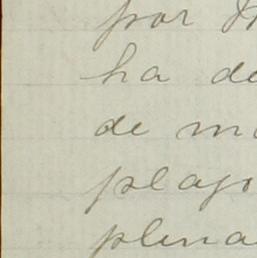 por
ha de
de m
playo
plena